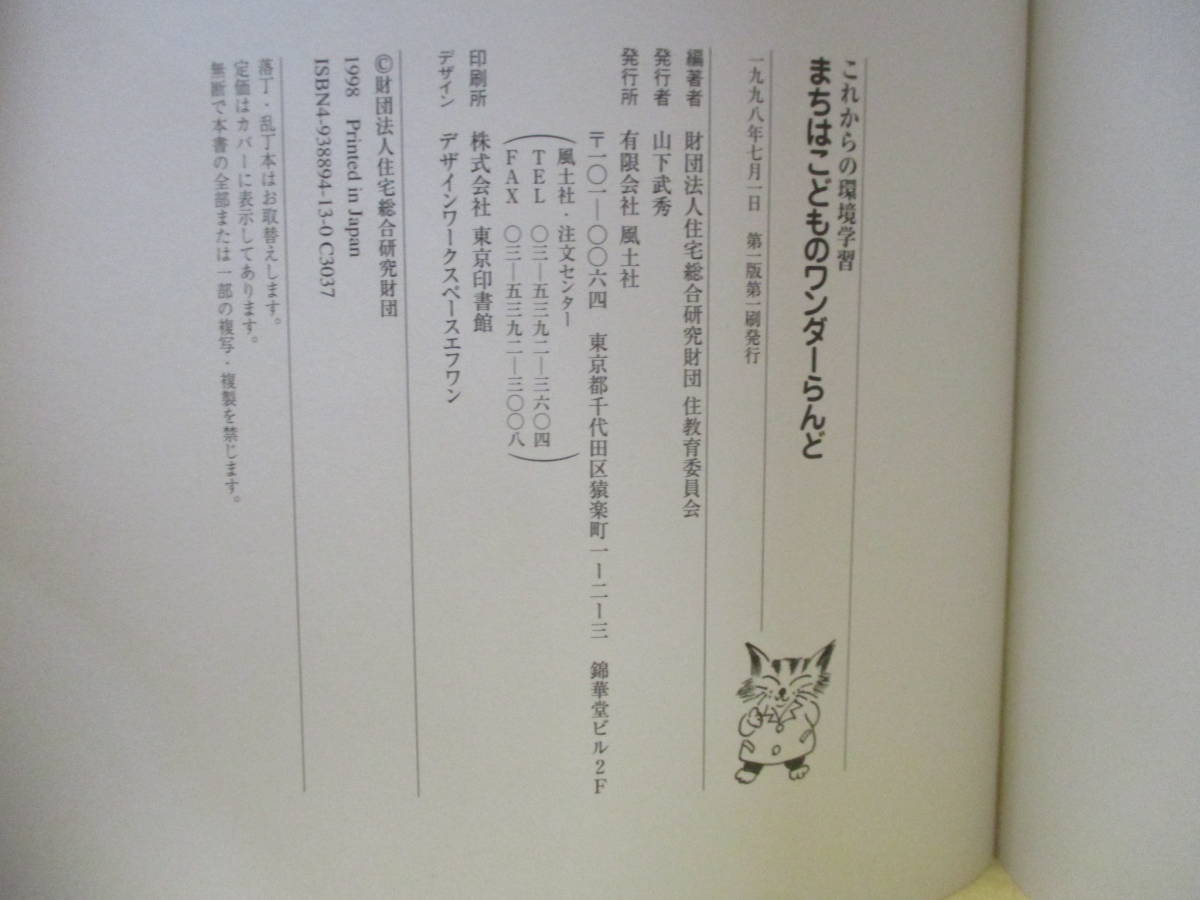 これからの環境学習
まちはこどものワンダーらんど
一九九八年七月一日　第一版第一刷発行
編著者　財団法人住宅総合研究財団 住教育委員会
発行者　山下武秀
発行所　有限会社 風土社
〒一〇一―〇〇六四　東京都千代田区猿楽町一―二―三　錦華堂ビル２Ｆ
（風土社・注文センター
ＴＥＬ　〇三―五三九二―三六〇四
ＦＡＸ　〇三―五三九二―三〇〇八）
印刷所　株式会社 東京印書館
デザイン　デザインワークスペースエフワン
©財団法人住宅総合研究財団
1998　Printed in Japan
ISBN4-938894-13-0 C3037
落丁・乱丁本はお取替えします。
定価はカバーに表示してあります。
無断で本書の全部または一部の複写・複製を禁じます。